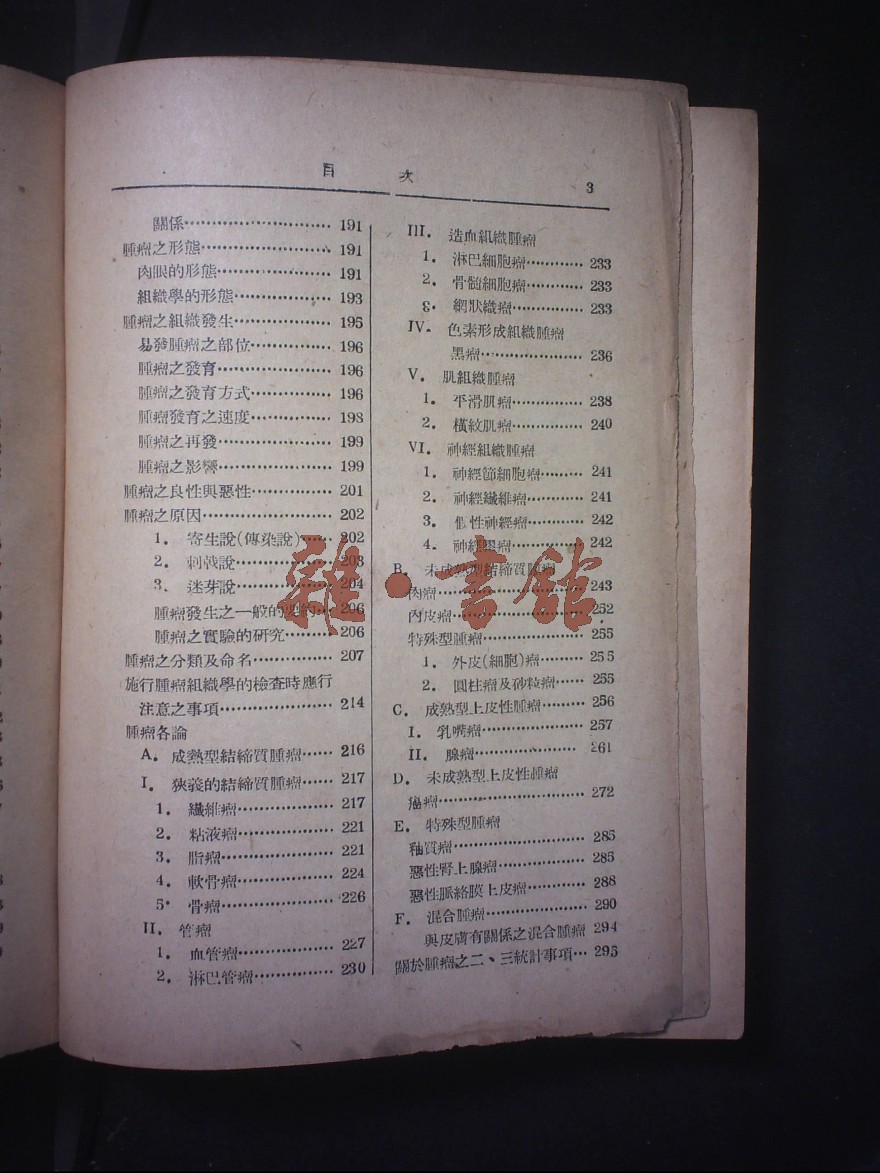 目 次 3
關係 191
腫瘤之形態 191
肉眼的形態 191
組織學的形態 193
腫瘤之組織發生 195
易發腫瘤之部位 196
腫瘤之發育 196
腫瘤之發育方式 196
腫瘤發育之速度 198
腫瘤之再發 199
腫瘤之影響 199
腫瘤之良性與惡性 201
腫瘤之原因 202
1. 寄生說(傳染說) 202
2. 刺戟說 203
3. 迷芽說 204
腫瘤發生之一般的要約 206
腫瘤之實驗的研究 206
腫瘤之分類及命名 207
施行腫瘤組織學的檢查時應行
注意之事項 214
腫瘤各論
A. 成熟型結締質腫瘤 216
I. 狹義的結締質腫瘤 217
1. 纖維瘤 217
2. 粘液瘤 221
3. 脂瘤 221
4. 軟骨瘤 224
5. 骨瘤 226
II. 管瘤
1. 血管瘤 227
2. 淋巴管瘤 230
III. 造血組織腫瘤
1. 淋巴細胞瘤 233
2. 骨髓細胞瘤 233
3. 網狀織瘤 233
IV. 色素形成組織腫瘤
黑瘤 236
V. 肌組織腫瘤
1. 平滑肌瘤 238
2. 橫紋肌瘤 240
VI. 神經組織腫瘤
1. 神經節細胞瘤 241
2. 神經纖維瘤 241
3. 性神經瘤 242
4. 神經膠瘤 242
B. 未成熟型結締質腫瘤
肉瘤 243
內皮瘤 252
特殊型腫瘤 255
1. 外皮(細胞)瘤 255
2. 圓柱瘤及砂粒瘤 255
C. 成熟型上皮性腫瘤 256
I. 乳嘴瘤 257
II. 腺瘤 261
D. 未成熟型上皮性腫瘤
癌瘤 272
E. 特殊型腫瘤
釉質瘤 285
惡性腎上腺瘤 285
惡性脈絡膜上皮瘤 288
F. 混合腫瘤 290
與皮膚有關係之混合腫瘤 294
關於腫瘤之二、三統計事項 295
雜·書館